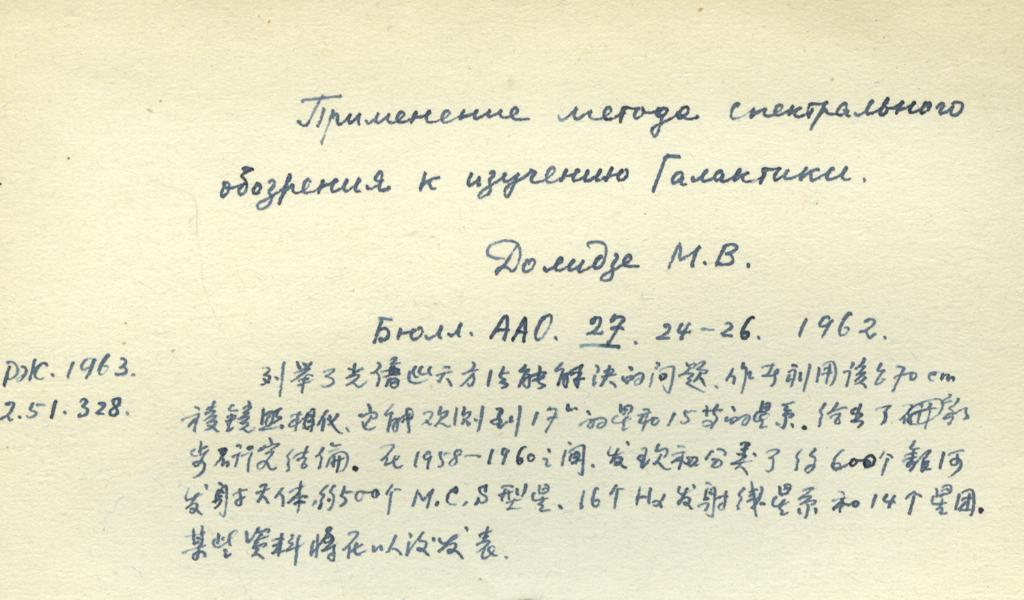 Применение метода спектрального
обозрения к изучению Галактики.
Долидзе М.В.
Бюлл. ААО. 27. 24-26. 1962.
РЖ. 1963.
2.51.328.
列举了光谱巡天方法能解决的问题. 作者利用该台70cm
棱镜照相仪. 它能观测到17ᵐ的星和15等的星系. 给出了
初步研究结论. 在1958-1960之间. 发现和分类了约600个银河
发射天体. 约500个M.C.S型星. 16个Hα发射线星系和14个星团.
某些资料将在以后发表.